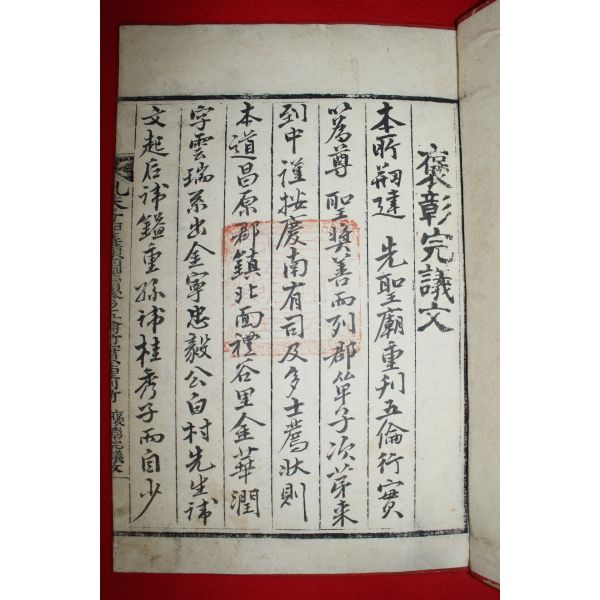 褒彰完議文
本所翔達 先聖廟重刊五倫行實
以為尊 聖奬善而列郡單子次苐来
到中謹按慶南有司及多士薦狀則
本道昌原郡鎮北面禮谷里金華潤
字雲瑞系出金寧忠毅公白村先生諱
文起后諱鎰重孫諱桂秀子而自少
褒彰完議文